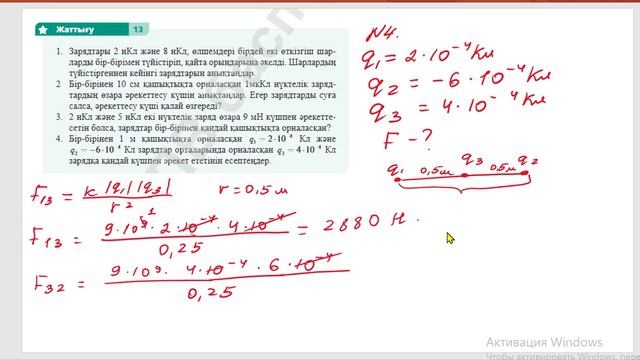 Жаттығу 13
1. Зарядтары 2 нКл және 8 нКл, өлшемдері бірдей екі өткізгіш шар-
ларды бір-бірімен түйістіріп, қайта орындарына әкелді. Шарлардың
түйістіргеннен кейінгі зарядтарын анықтаңдар.
2 Бір-бірінен 10 см қашықтықта орналасқан 1мкКл нүктелік заряд-
тардың өзара әрекеттесу күшін анықтаңдар. Егер зарядтарды суға
салса, әрекеттесу күші қалай өзгереді?
3. 2 нКл және 5 нКл екі нүктелік заряд өзара 9 мН күшпен әрекетте-
сетін болса, зарядтар бір-бірінен қандай қашықтықта орналасқан?
4. Бір-бірінен 1 м қашықтықта орналасқан q₁ = 2·10⁻⁴ Кл және
q₂ = −6·10⁻⁴ Кл зарядтар орталарында орналасқан q₃ = 4·10⁻⁴ Кл
зарядқа қандай күшпен әрекет ететінін есептеңдер.
N4.
q₁ = 2·10⁻⁴ Кл
q₂ = −6·10⁻⁴ Кл
q₃ = 4·10⁻⁴ Кл
F - ?
q₁ 0,5м q₃ 0,5м q₂
F₁₃ = k|q₁||q₃| / r² r = 0,5 м
F₁₃ = 9·10⁹·2·10⁻⁴·4·10⁻⁴ / 0,25 = 2880 Н.
F₃₂ = 9·10⁹·4·10⁻⁴·6·10⁻⁴ / 0,25
Активация Windows